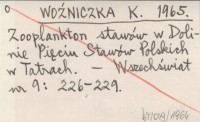 WOŹNICZKA K. 1965.
Zooplankton stawów w Doli-
nie Pięciu Stawów Polskich
w Tatrach. — Wszechświat
nr 9: 226-229.